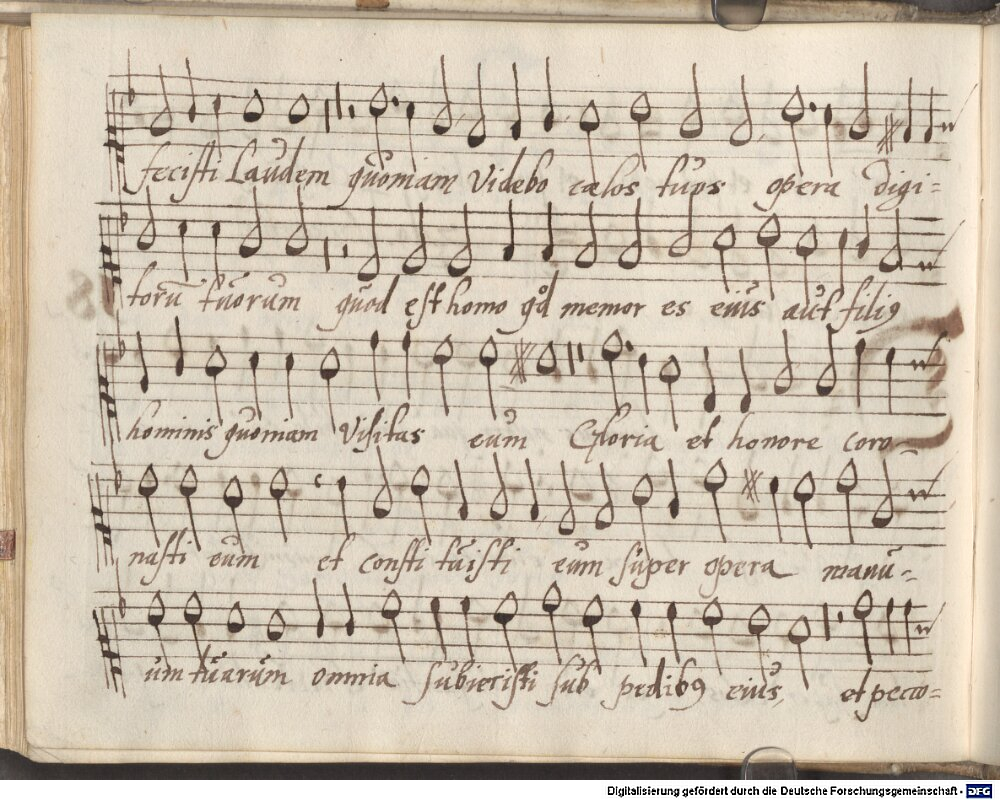 fecisti Laudem quoniam Videbo cælos tuos opera digi=
torū tuorum quod est homo qd memor es eius aut filiꝰ
hominis quoniam Visitas eum Gloria et honore coro-
nasti eum et constituisti eum super opera manu-
um tuarum omnia subiecisti sub pedibꝰ eius, et peco=
Digitalisierung gefördert durch die Deutsche Forschungsgemeinschaft - DFG